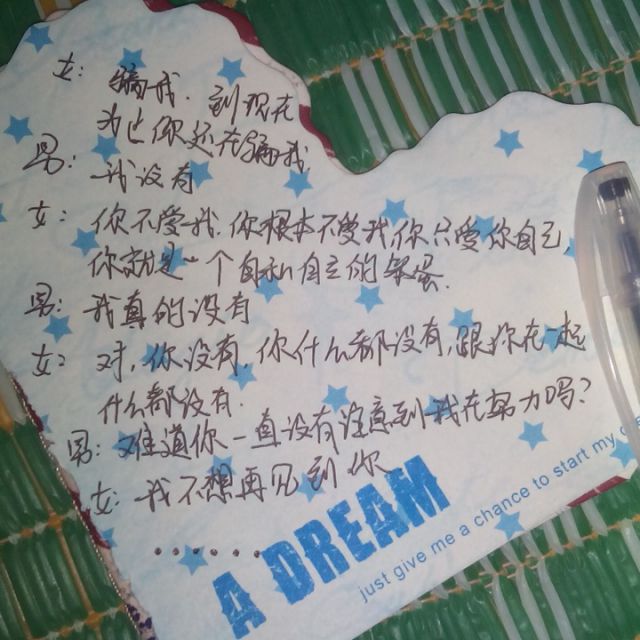 女: 骗我. 到现在
为止你还在骗我
男: 我没有
女: 你不爱我.你根本不爱我你只爱你自己,
你就是一个自私自立的笨蛋.
男: 我真的没有
女: 对, 你没有, 你什么都没有, 跟你在一起
什么都没有.
男: 难道你一直没有注意到我在努力吗?
女: 我不想再见到你
......
A DREAM
just give me a chance to start my